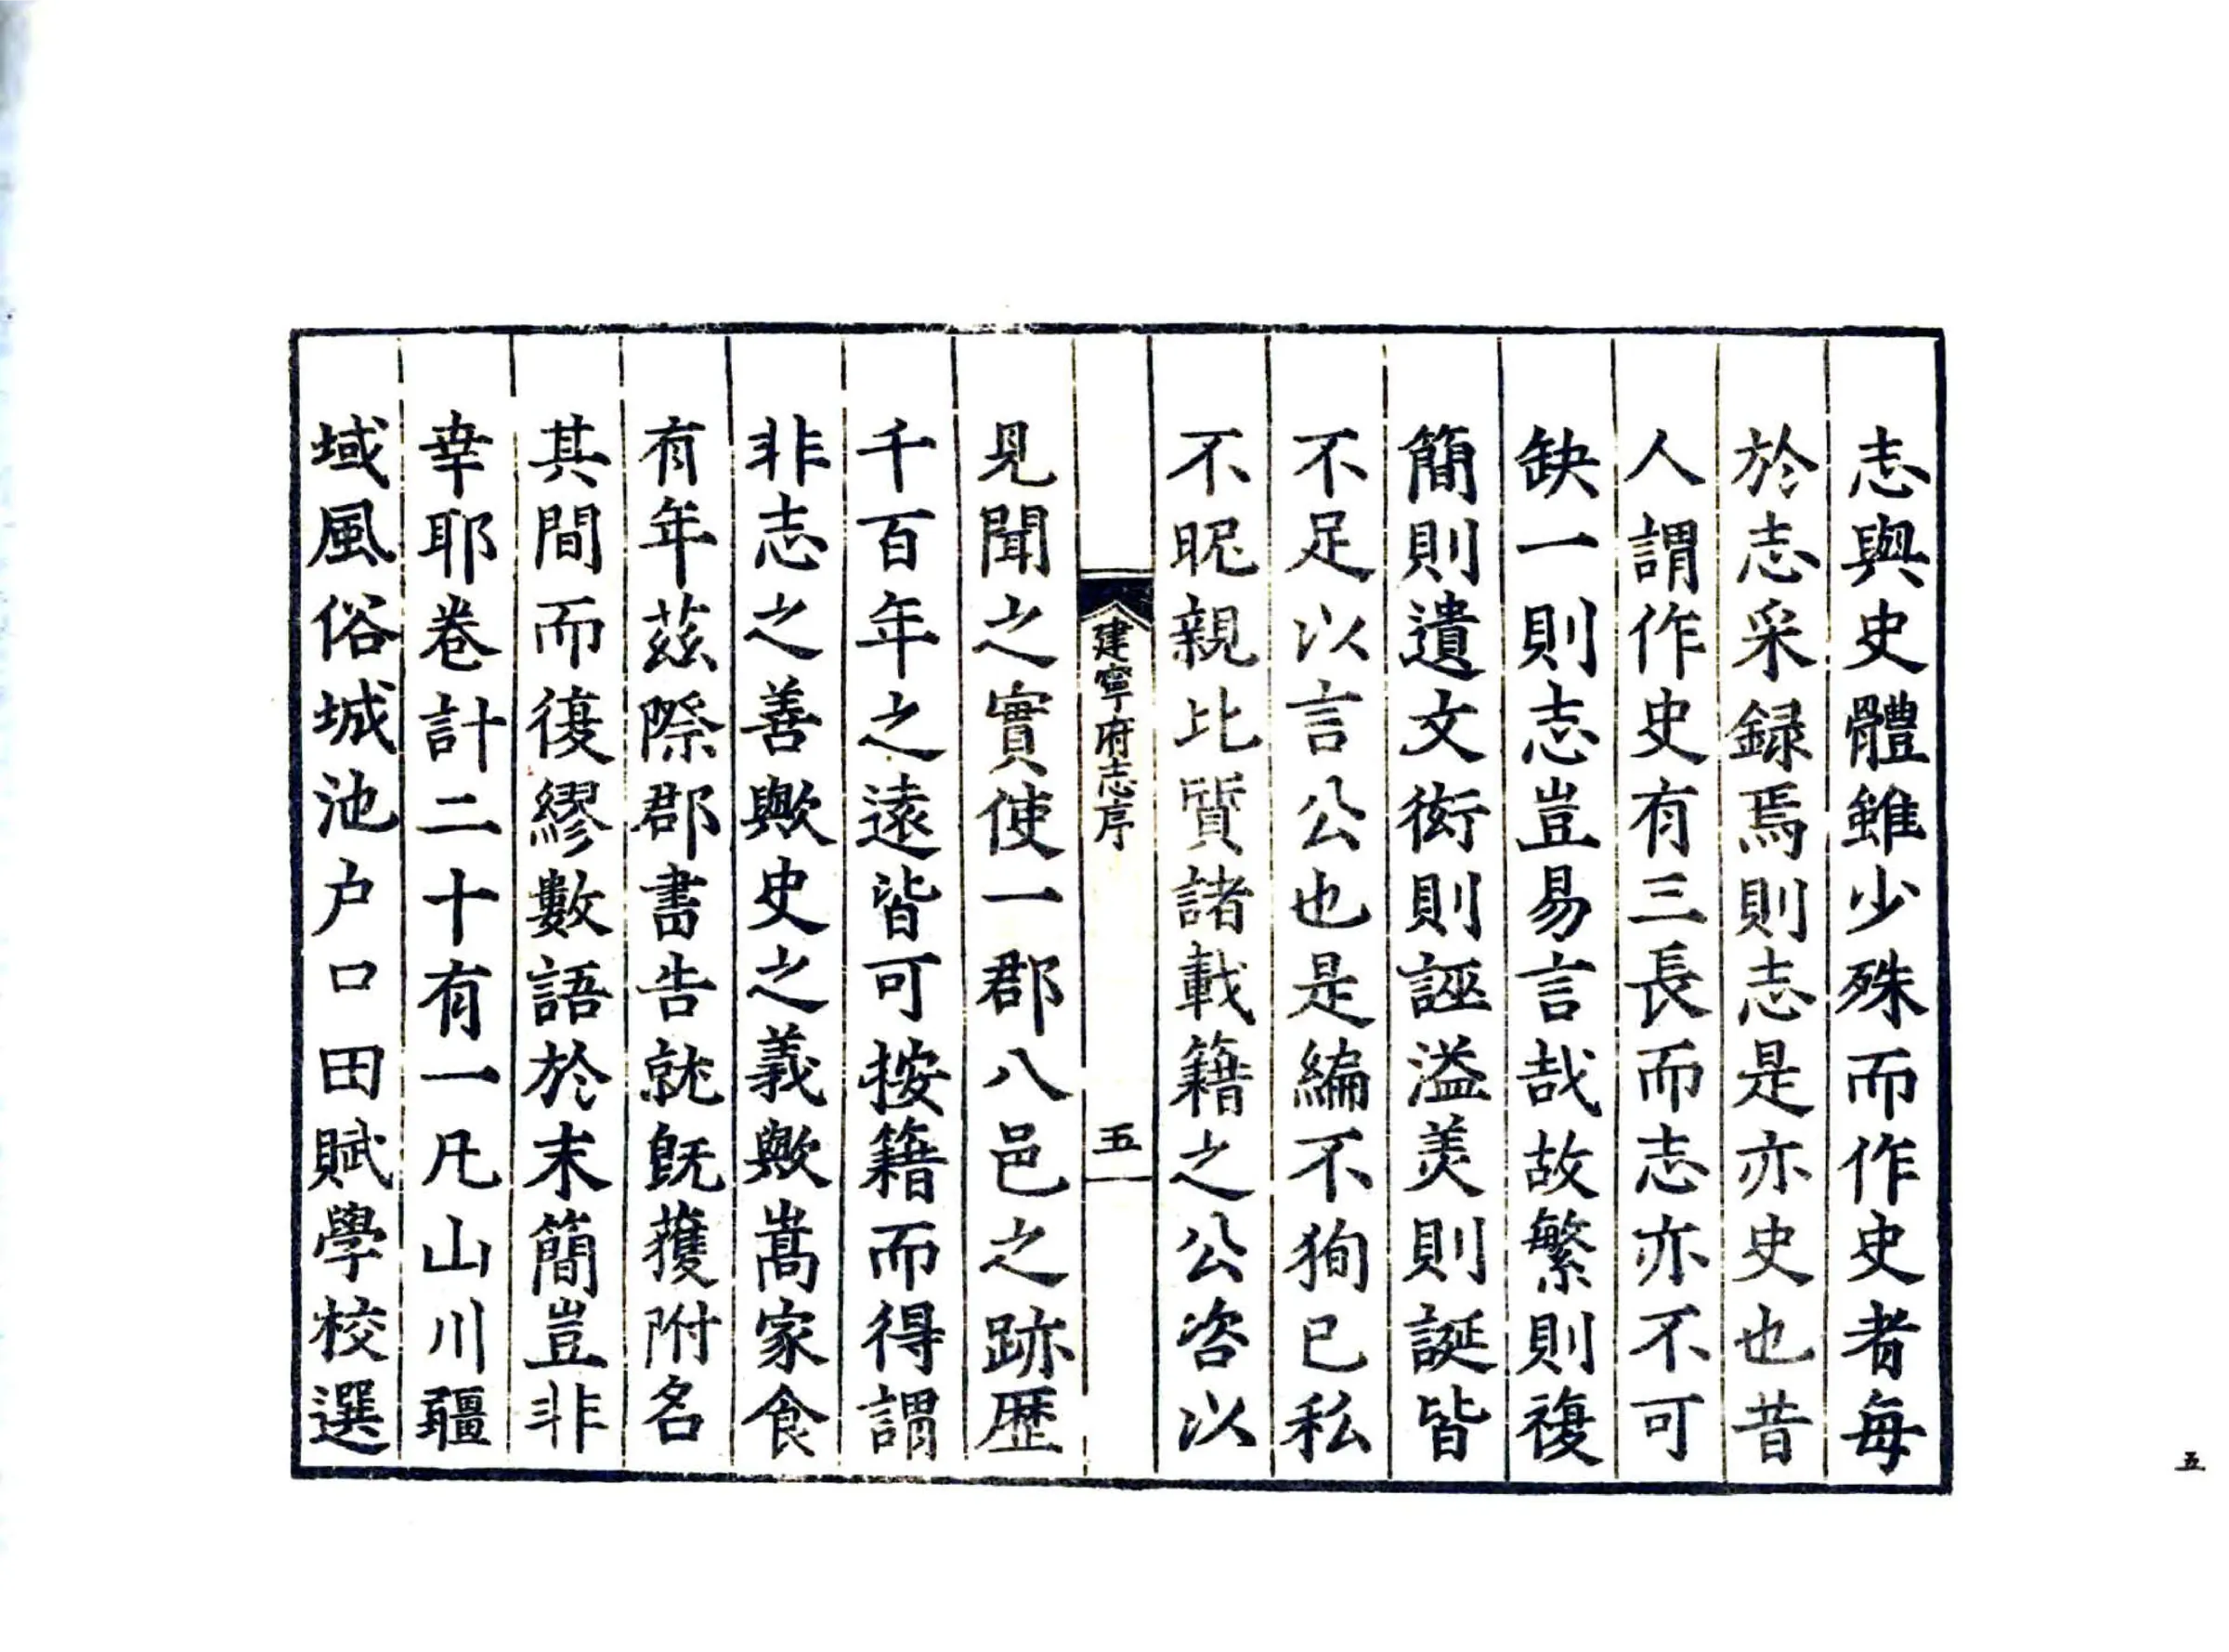 志與史體雖少殊而作史者每
於志采録焉則志是亦史也昔
人謂作史有三長而志亦不可
缺一則志豈易言哉故繁則複
簡則遺文衒則誣溢美則誕皆
不足以言公也是編不狥已私
不昵親比質諸載籍之公咨以
建寧府志序
五
見聞之實使一郡八邑之跡歷
千百年之遠皆可按籍而得謂
非志之善歟史之義歟嵩家食
有年茲際郡書告就旣獲附名
其間而復繆數語於末簡豈非
幸耶卷計二十有一凡山川疆
域風俗城池户口田賦學校選
五